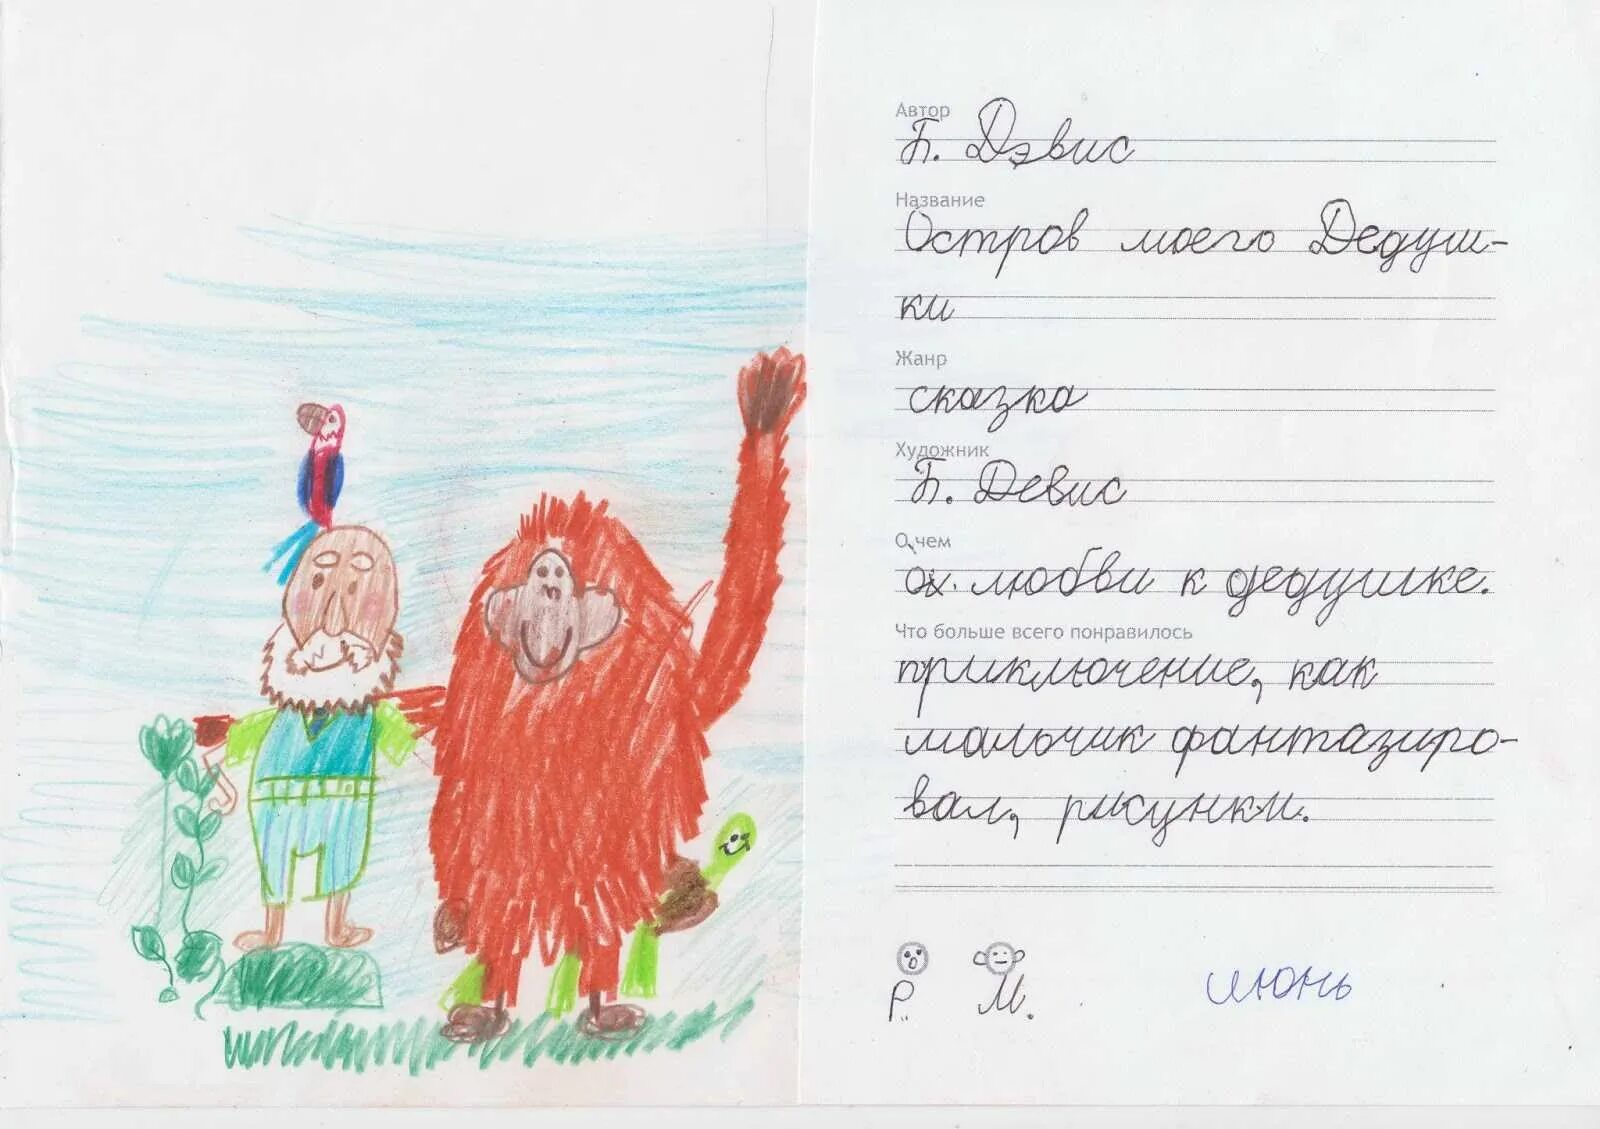 Автор
Б. Дэвис
Название
Остров моего Дедуш-
ки
Жанр
сказка
Художник
Б. Девис
О чем
ох. любви к дедушке.
Что больше всего понравилось
приключение, как
мальчик фантазиро-
вал, рисунки.
Р.. М.
июнь